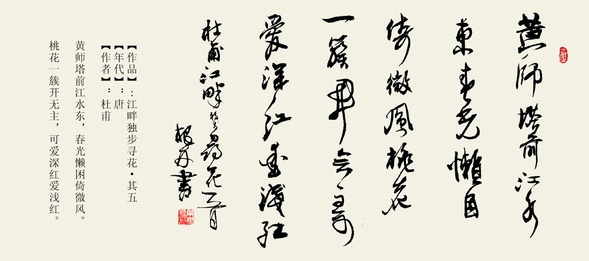 黄师塔前江水
東春光懒困
倚微风桃花
一簇開无主可
爱深红爱浅红
杜甫江畔独步寻花
书
【作品】：江畔独步寻花·其五
【年代】：唐
【作者】：杜甫
黄师塔前江水东，春光懒困倚微风。
桃花一簇开无主，可爱深红爱浅红。